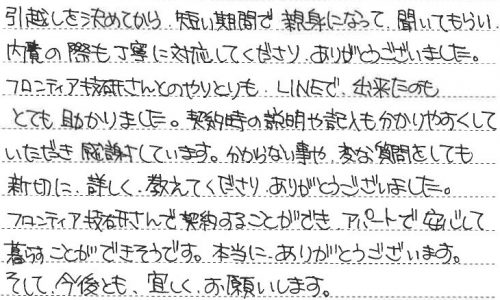 引越しを決めてから、短い期間で親身になって、聞いてもらい
内覧の際も丁寧に対応してくださり、ありがとうございました。
フロンティア技研さんとのやりとりも、LINEで、出来たのも
とても助かりました。契約時の説明や記入も分かりやすくして
いただき感謝しています。分からない事や、変な質問をしても
新切に、詳しく、教えてくださり、ありがとうございました。
フロンティア技研さんで契約することができ、アパートで安心して
暮らすことができそうです。本当に、ありがとうございます。
そして、今後とも、宜しく、お願いします。